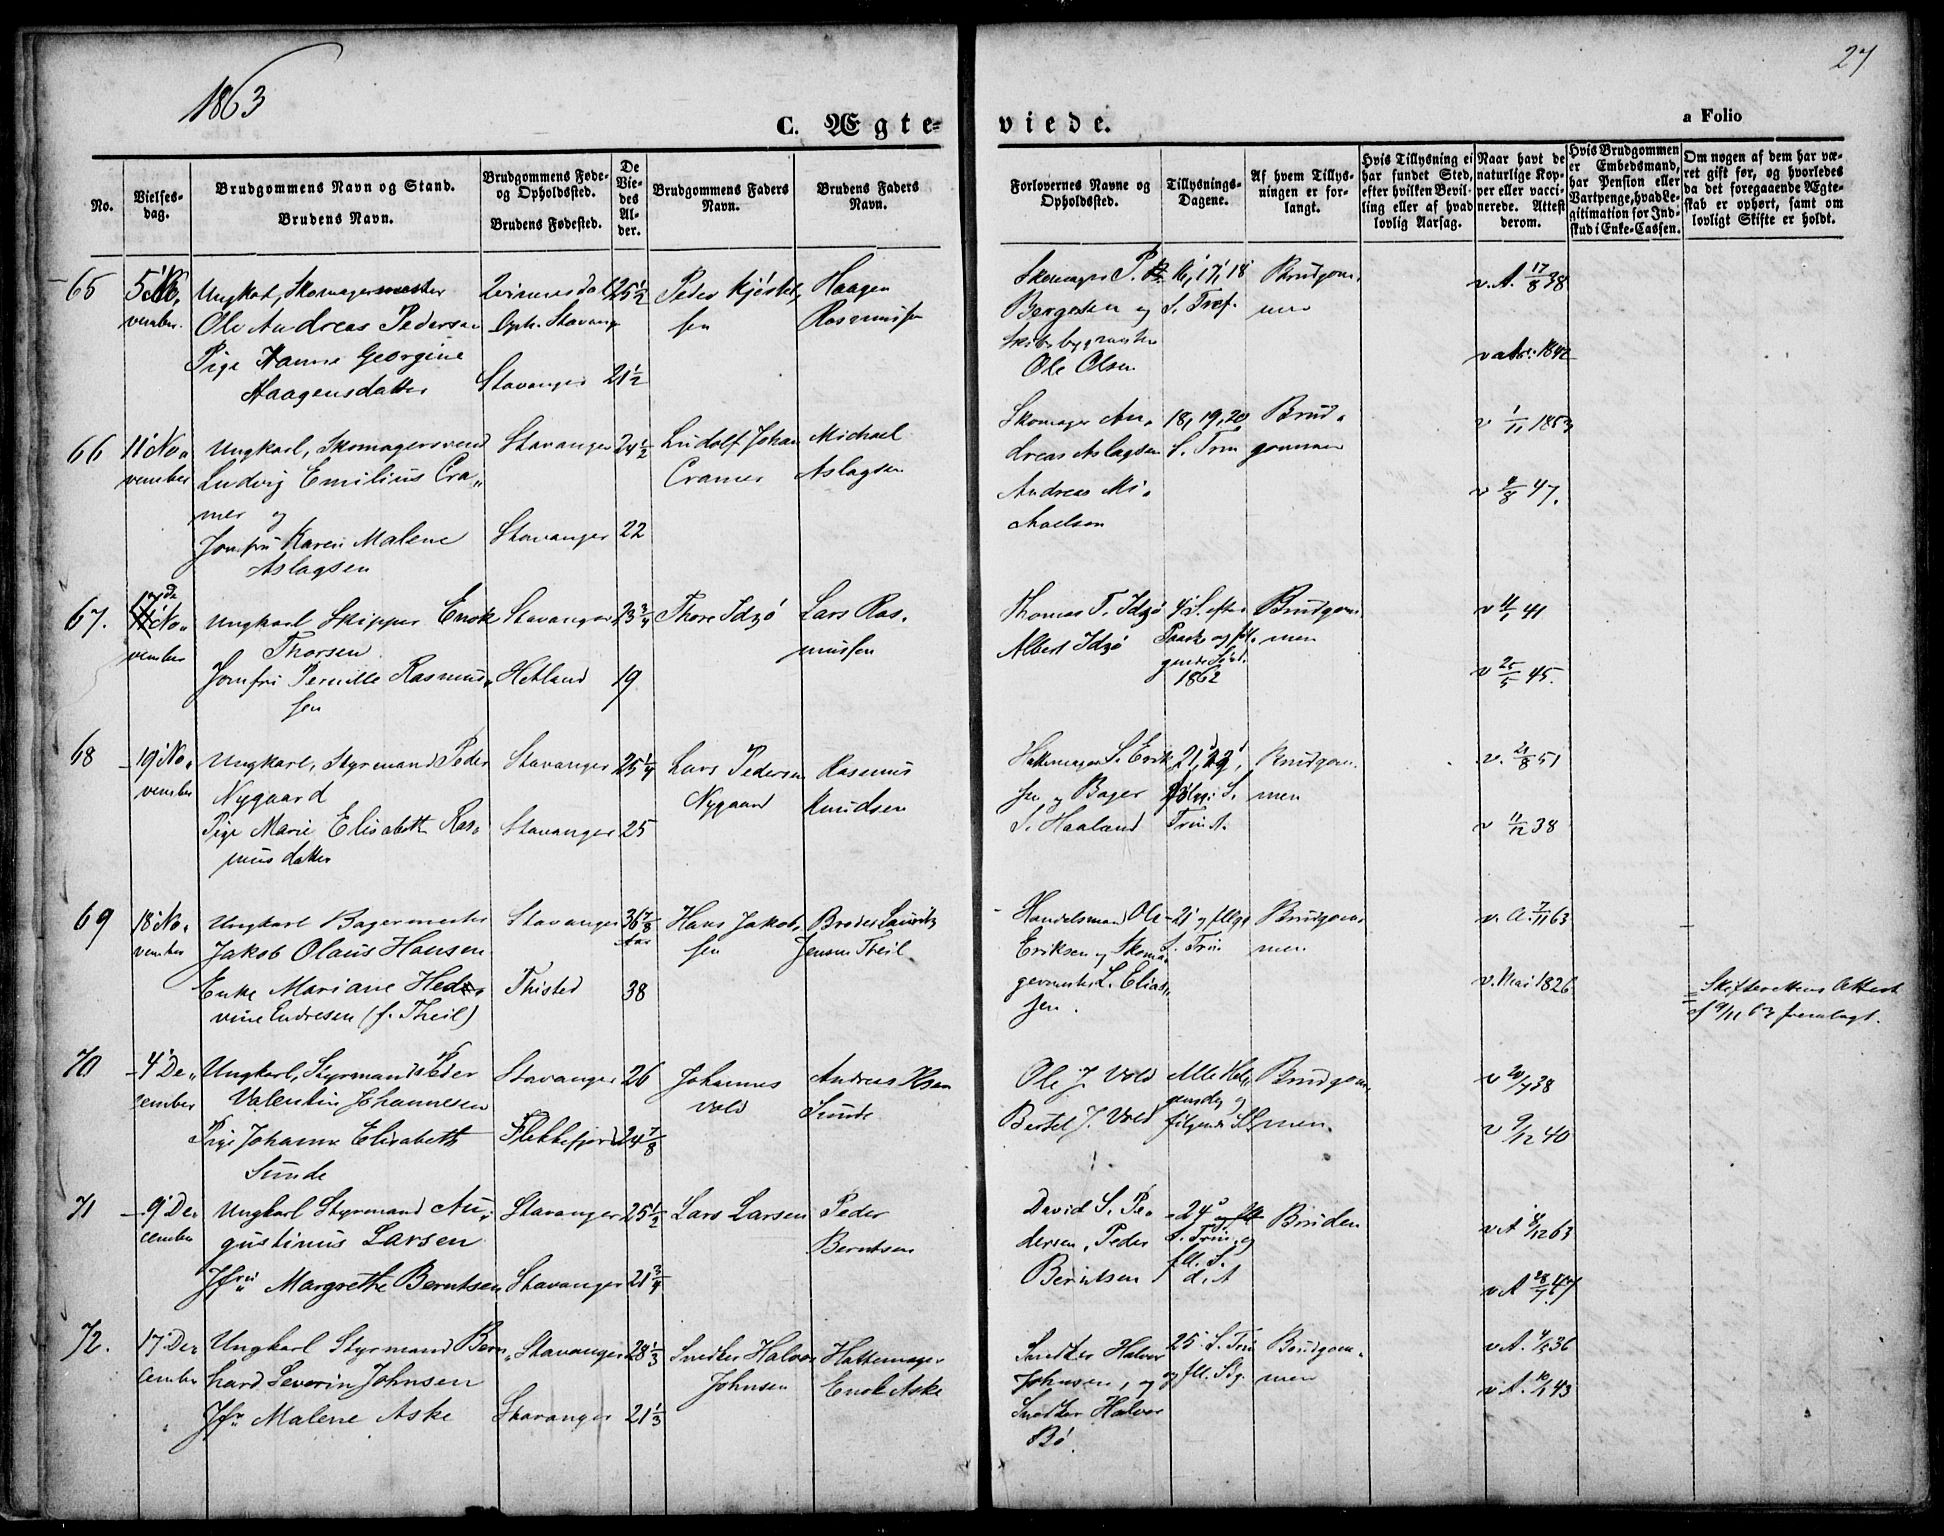 1863
27
C. Ægte-
viede.
a Folio
No.
Vielses-
dag.
Brudgommens Navn og Stand.
Brudens Navn.
Brudgommens Føde-
og Opholdssted.
Brudens Fødested.
De
Vie-
des
Al-
der.
Brudgommens Faders
Navn.
Brudens Faders
Navn.
Forlovernes Navne og
Opholdssted.
Tillysnings-
Dagene.
Af hvem Tillys-
ningen er for-
langt.
Hvis Tillysning ei
har fundet Sted,
efter hvilken Bevil-
ling eller af hvad
lovlig Aarsag.
Naar havt de
naturlige Kop-
per eller vacci-
nerede. Attest
derom.
Hvis Brudgommen
er Embedsmand,
har Pension eller
Vartpenge, hvad Le-
gitimation for Ind-
skud i Enke-Cassen.
Om nogen af dem har væ-
ret gift før, og hvorledes
da det foregaaende Ægte-
skab er ophørt, samt om
lovligt Skifte er holdt.
65
5' No-
vember.
Ungkarl, Skomagermester
Ole Andreas Pedersen
Pige Hanne Georgine
Haagensdatter
Oph. Stavang
Stavanger
25 1/2
21 1/2
Peder
sen
Haagen
Rasmussen
Skomager P.
Bergesen og
Ole Olsen
16, 17, 18
S. Tref.
Brudgom-
men
v. A. 17/8 38
1842
66
11' No-
vember
Ungkarl, Skomagersvend
Ludvig Emilius Cra-
mer og
Jomfru Karen Malene
Aslagsen
Stavanger
Stavanger
24 1/2
22
Ludolf Johan
Cramer
Michael
Aslagsen
Skomager An-
dreas Aslagsen
Andreas Mi-
chaelsen
18, 19, 20
S. Trin
Brud-
gommen
v 1/11 1853
v 9/8 47.
67.
No-
vember
Ungkarl Skipper Enok
Thorsen
Jomfru Pernille Rasmus-
sen
Stavanger
Hetland
23 3/4
19
Thore Idzö
Lars Ras-
mussen
Thomas T. Idzö
Albert Idzö
4' S. efter
Paaske og føl-
gende Sønd.
1862
Brudgom-
men
41
v 25/5 45.
68
19' No-
vember
Ungkarl, Styrmand Peder
Nygaard
Pige Marie Elisabeth Ras-
musdatter
Stavanger
Stavanger
25 1/4
25
Lars Pedersen
Nygaard
Rasmus
Knudsen
S. Erik-
sen og Bager
S. Haaland
21, 22,
Trin.
Brudgom-
men
v. 21/8 51
v 11/12 38
69
18' No-
vember
Ungkarl Bagermester
Jakob Olaus Hansen
Enke Mariane Hed-
vine Endresen (f. Theil)
Stavanger
Thisted
36 7/8
Aar
38
Hans Jakob-
sen
Broder Lauritz
Jensen Theil
Handelsmand Ole
Eriksen og Skoma-
germester L. Elias-
sen.
21' og flg.
S. Trin
Brudgom-
men
v. A. 7/11 63
v. Mai 1826
Skifterettens Attest
af 9/11 63 fremlagt.
70
4' De-
cember
Ungkarl, Styrmand Peder
Valentin Johannesen
Pige Johanne Elisabeth
Sunde
Stavanger
Flekkefjord
26
24 7/8
Johannes
Vold
Andreas
Sunde
Ole J. Vold
Bertel J. Vold
Alle Hel-
gensdag og
følgende S.
Brudgom-
men.
v 20/7 38
v 9/12 40
71
9' De-
cember
Ungkarl Styrmand Au-
gustinus Larsen
Jfru Margrethe Berntsen
Stavanger
Stavanger
25 1/2
21 3/4
Lars Larsen
Peder
Berntsen
David S. Pe-
dersen, Peder
Berntsen
24'
S. Trin. og
fll. S.
d. A
Bruden
v. A 8/12 63
v. A 28/7 47
72.
17' De-
cember
Ungkarl Styrmand Bern-
hard Severin Johnsen
Jfr. Malene Aske
Stavanger
Stavanger
28 1/3
21 1/3
Snedker Halvor
Johnsen
Hattemager
Enok Aske
Snedker Halvor
Johnsen, og
Snedker Halvor
Bö.
25' S. Trin
og fll. Sdg.
Brudgom-
men
v. A. 36
v. A. 43